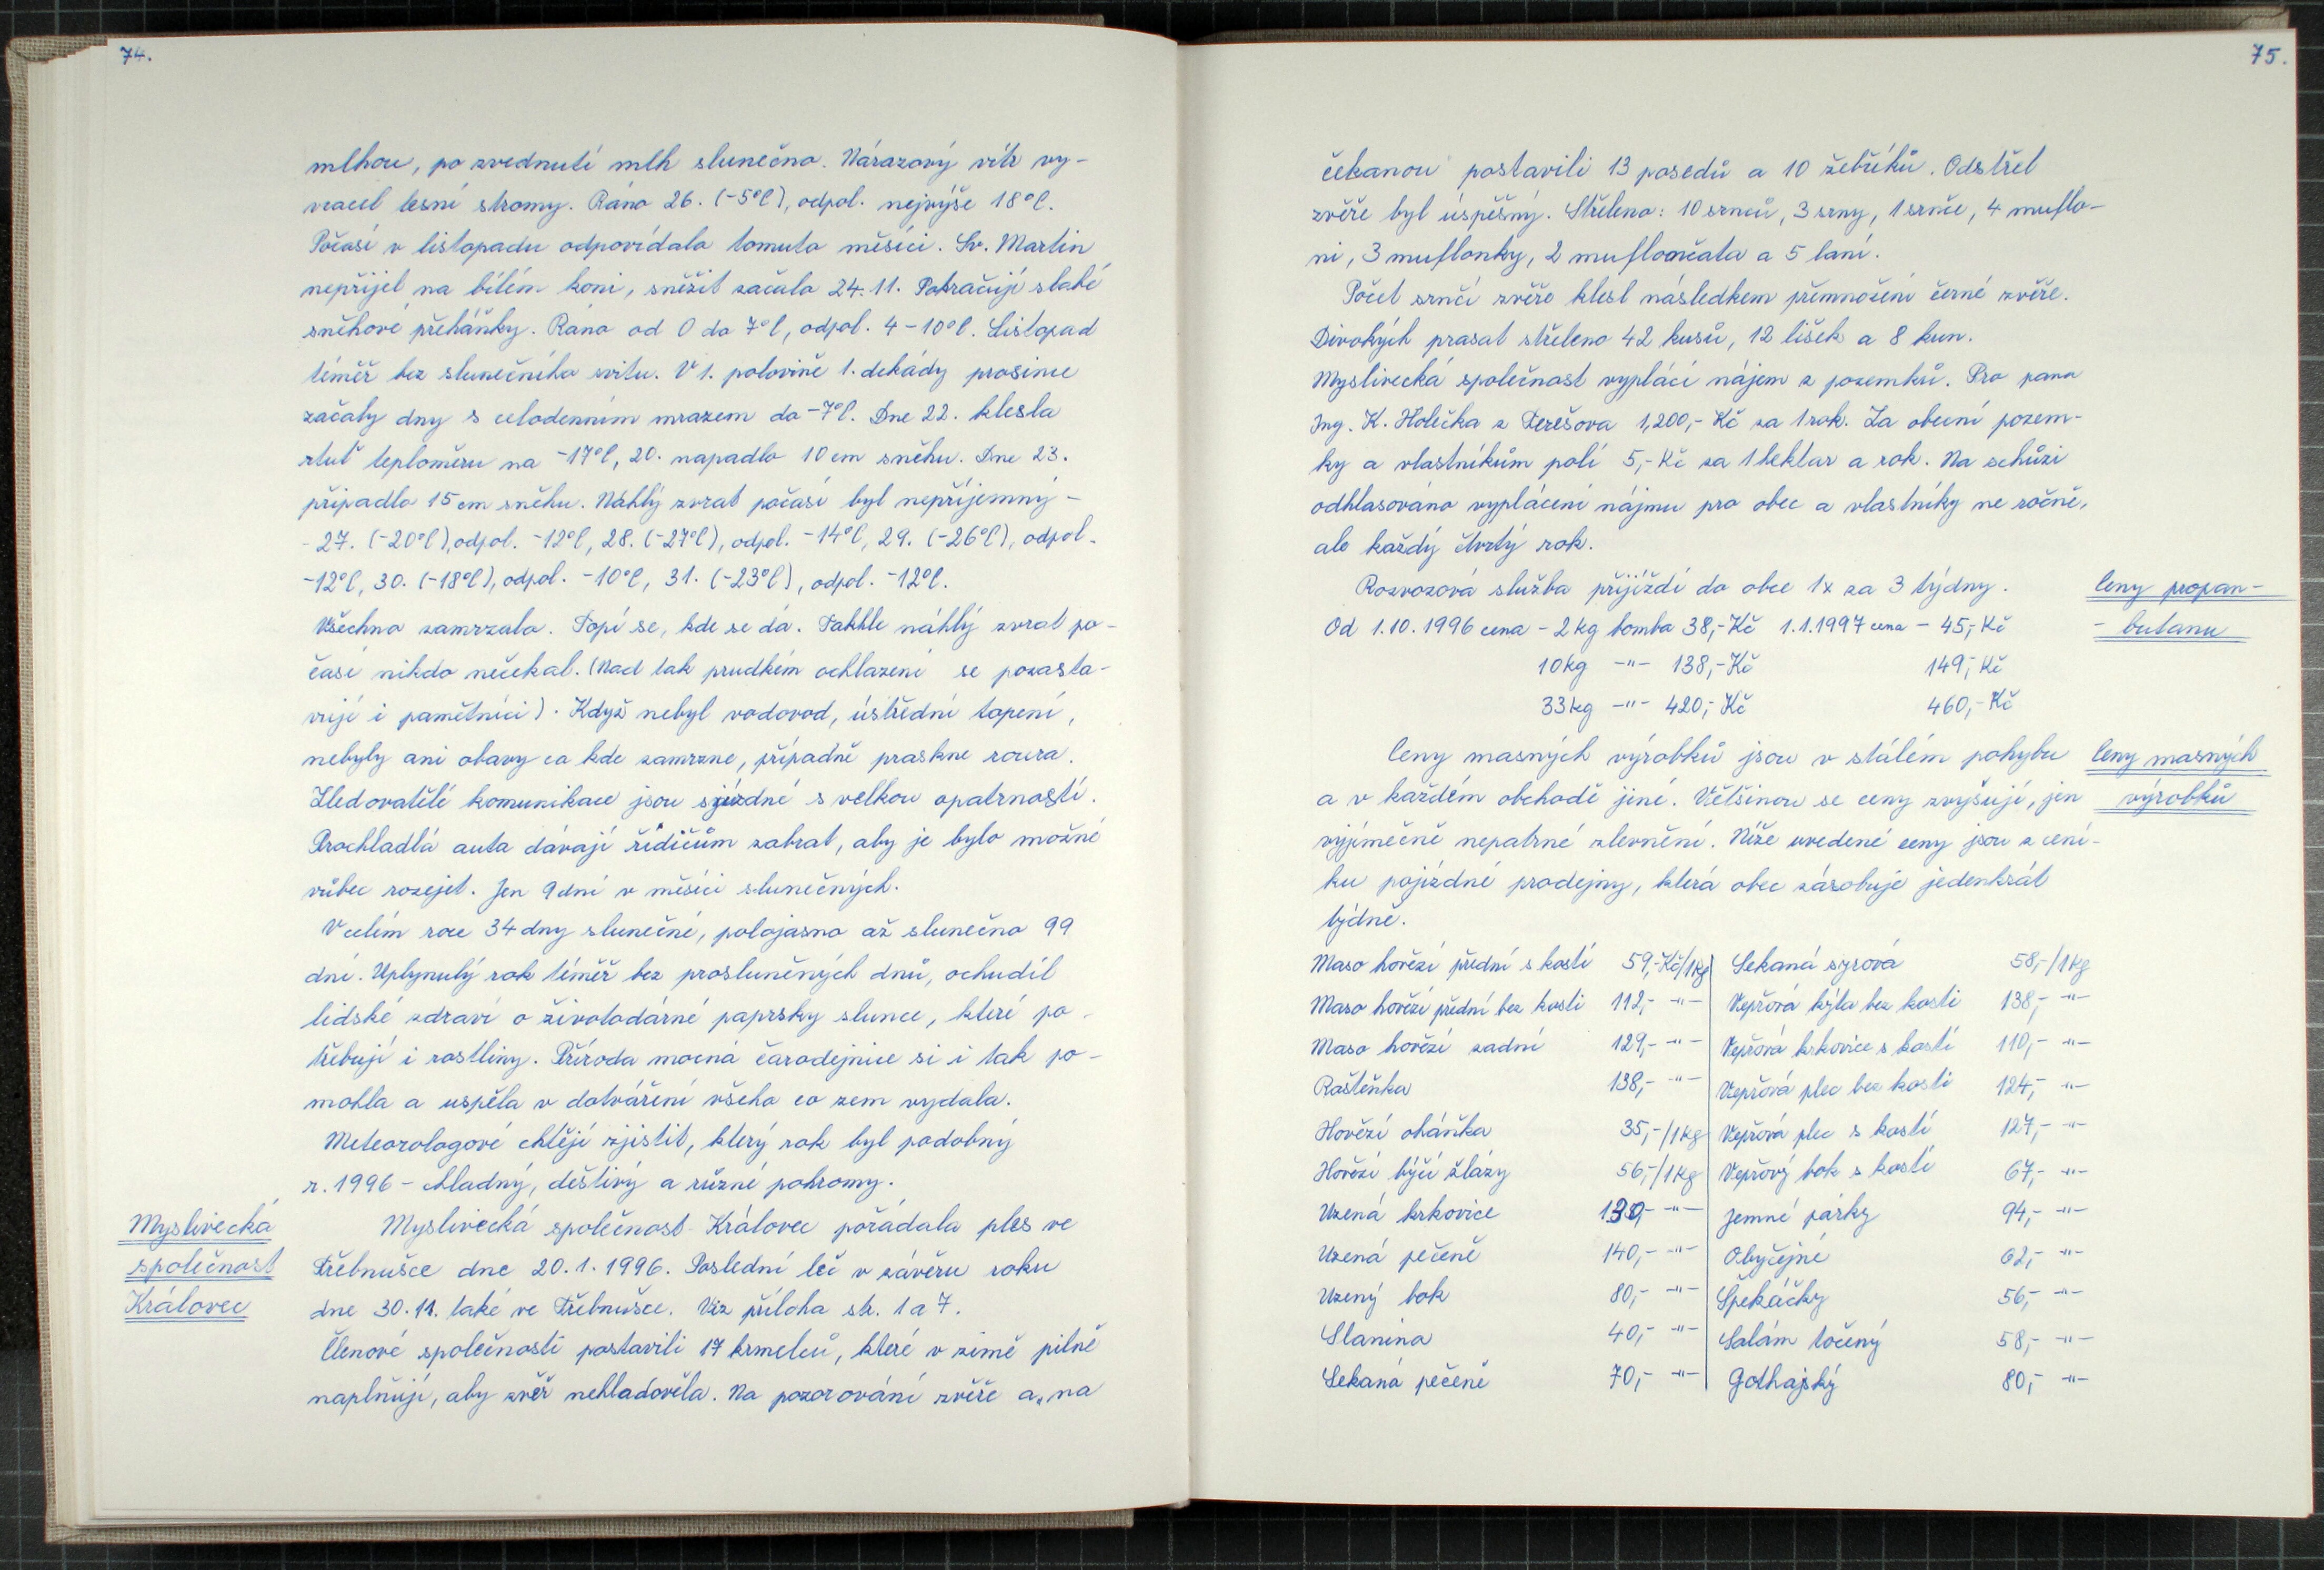 74.
mlhou, po zvednutí mlh slunečno. Nárazový vítr vy-
vracel lesní stromy. Ráno 26. (-5°C), odpol. nejvýše 18°C.
Počasí v listopadu odpovídalo tomuto měsíci. Sv. Martin
nepřijel na bílém koni, sněžit začalo 24.11. Pokračují slabé
sněhové přeháňky. Ráno od 0 do 7°C, odpol. 4-10°C. Listopad
téměř bez slunečního svitu. V 1. polovině 1. dekády prosince
začaly dny s celodenním mrazem do -7°C. Dne 22. klesla
rtuť teploměru na -17°C, 20. napadlo 10 cm sněhu. Dne 23.
připadlo 15 cm sněhu. Náhlý zvrat počasí byl nepříjemný -
- 27. (-20°C), odpol. -12°C, 28. (-27°C), odpol. -14°C, 29. (-26°C), odpol.
-12°C, 30. (-18°C), odpol. -10°C, 31. (-23°C), odpol. -12°C.
Všechno zamrzalo. Topí se, kde se dá. Takhle náhlý zvrat po-
časí nikdo nečekal. (Nad tak prudkém ochlazení se pozasta-
vují i pamětníci). Když nebyl vodovod, ústřední topení,
nebyly ani obavy co kde zamrzne, případně praskne roura.
Zledovatělé komunikace jsou sjízdné s velkou opatrností.
Prochladlá auta dávají řidičům zabrat, aby je bylo možné
vůbec rozejet. Jen 9 dní v měsíci slunečných.
V celém roce 34 dny slunečné, polojasno až slunečno 99
dní. Uplynulý rok téměř bez prosluněných dnů, ochudil
lidské zdraví o životodárné paprsky slunce, které po-
třebují i rostliny. Příroda mocná čarodejnice si i tak po-
mohla a uspěla v dotváření všeho co zem vydala.
Meteorologové chtějí zjistit, který rok byl podobný
r. 1996 - chladný, deštivý a různé pohromy.
Myslivecká
společnost
Královec
Myslivecká společnost Královec pořádala ples ve
Třebnušce dne 20.1.1996. Poslední leč v závěru roku
dne 30.11. také ve Třebnušce. Viz příloha str. 1 a 7.
Členové společnosti postavili 17 krmelců, které v zimě pilně
naplňují, aby zvěř nehladověla. Na pozorování zvěře a „na
75.
čekanou postavili 13 posedů a 10 žebříků. Odstřel
zvěře byl úspěšný. Střeleno: 10 srnců, 3 srny, 1 srnče, 4 muflo-
ni, 3 muflonky, 2 muflončata a 5 laní.
Počet srnčí zvěře klesl následkem přemnožení černé zvěře.
Divokých prasat střeleno 42 kusů, 12 lišek a 8 kun.
Myslivecká společnost vyplácí nájem z pozemků. Pro pana
Ing. K. Holečka z Terešova 1,200,- Kč za 1 rok. Za obecní pozem-
ky a vlastníkům polí 5,- Kč za 1 hektar a rok. Na schůzi
odhlasováno vyplácení nájmu pro obec a vlastníky ne ročně,
ale každý čtvrtý rok.
Ceny propan-
- butanu
Rozvozová služba přijíždí do obce 1x za 3 týdny.
Od 1.10.1996 cena - 2 kg bomba 38,- Kč 1.1.1997 cena - 45,- Kč
10 kg -"- 138,- Kč 149,- Kč
33 kg -"- 420,- Kč 460,- Kč
Ceny masných
výrobků
Ceny masných výrobků jsou v stálém pohybu
a v každém obchodě jiné. Většinou se ceny zvyšují, jen
vyjímečně nepatrné zlevnění. Níže uvedené ceny jsou z cení-
ku pojízdné prodejny, která obec zásobuje jedenkrát
týdně.
Maso hovězí přední s kostí 59,- Kč/1kg Sekaná syrová 58,-/1kg
Maso hovězí přední bez kosti 112,- -"- Vepřová kýta bez kosti 138,- -"-
Maso hovězí zadní 129,- -"- Vepřová krkovice s kostí 110,- -"-
Roštěnka 138,- -"- Vepřová plec bez kosti 124,- -"-
Hovězí oháňka 35,-/1kg Vepřová plec s kostí 127,- -"-
Hovězí býčí žlázy 56,-/1kg Vepřový bok s kostí 67,- -"-
Uzená krkovice 130,- -"- Jemné párky 94,- -"-
Uzená pečeně 140,- -"- Obyčejné 62,- -"-
Uzený bok 80,- -"- Špekáčky 56,- -"-
Slanina 40,- -"- Salám točený 58,- -"-
Sekaná pečeně 70,- -"- Gothajský 80,- -"-